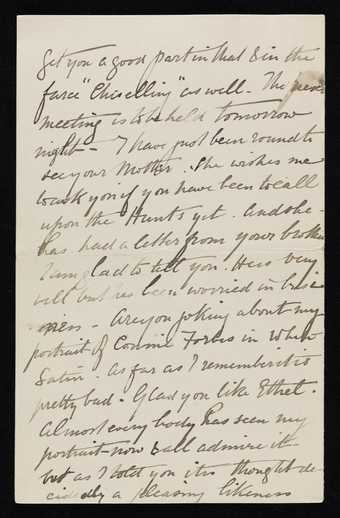 Get you a good part in that & in the
farce "Chiselling" as well - The next
meeting is to be held tomorrow
night - I have just been round to
see your Mother. She wishes me
to ask you if you have been to call
upon the Hunts yet. And she
has had a letter from your brother
I am glad to tell you. He is very
well but has been worried in busi
ness - Are you joking about my
portrait of Connie Forbes in White
Satin. As far as I remember it is
pretty bad. Glad you like Ethel.
Almost every body has seen my
portrait now & all admire it
but as I told you it is thought de-
cidedly a pleasing likeness